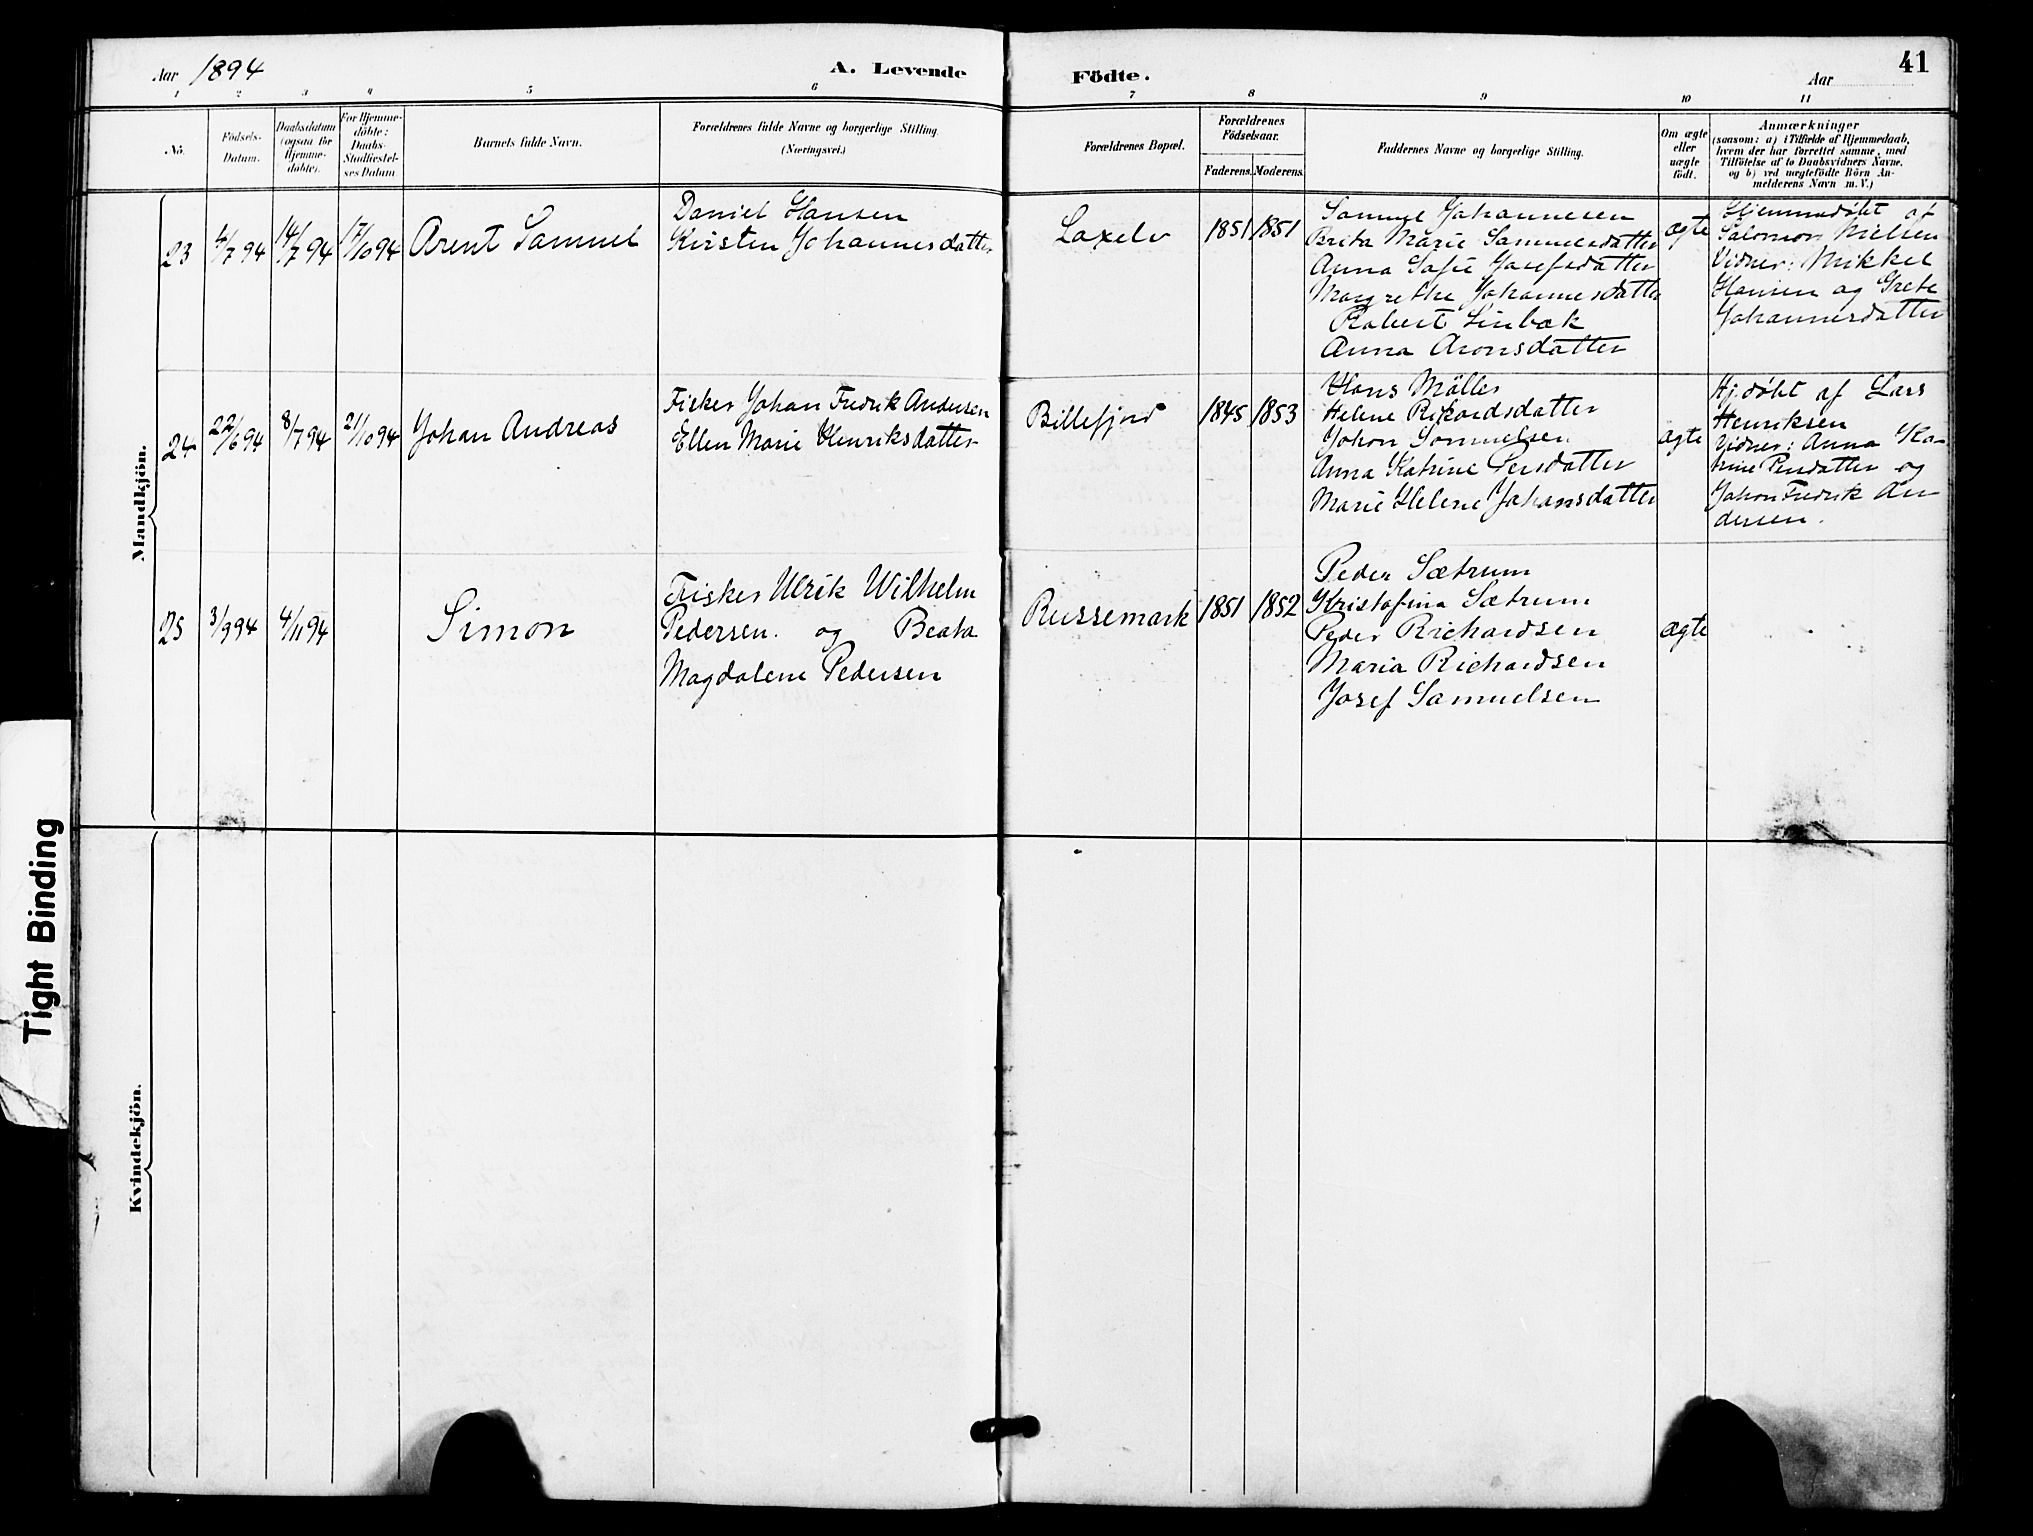 Aar 1894
A. Levende
Födte.
Aar
41
1 2 3 4 5 6 7 8 9 10 11
No.
Födsels-
Datum.
Daabsdatum
(ogsaa for
Hjemme-
döbte).
For Hjemme-
döbte:
Daabs-
Stadfæstel-
ses Datum
Barnets fulde Navn.
Forældrenes fulde Navne og borgerlige Stilling.
(Næringsvei.)
Forældrenes Bopæl.
Forældrenes
Födselsaar.
Faderens. Moderens.
Faddernes Navne og borgerlige Stilling.
Om ægte
eller
uægte
födt.
Anmærkninger
(saasom: a) i Tilfælde af Hjemmedaab,
hvem der har forrettet samme, med
Tilföielse af to Daabsvidners Navne,
og b) ved uægtefödte Börn An-
melderens Navn m.V.)
Mandkjön.
23
4/7 94
14/7 94
17/10 94
Arent Samuel
Daniel Hansen
Kirsten Johannesdatter
Laxelv
1851
1851
Samuel Johannesen
Brita Marie Samuelsdatter
Anna Sofie Josefsdatter
Margrethe Johannesdatter
Robert Linbak
Anna Aronsdatter
ægte
Hjemmedøbt af
Salomon Nielsen
Vidner: Mikkel
Hansen og Grete
Johannesdatter
24
22/6 94
8/7 94
21/10 94
Johan Andreas
Fisker Johan Fredrik Andersen
Ellen Marie Henriksdatter
Billefjord
1845
1853
Hans Møller
Helene Rikardsdatter
Johan Samuelsen
Anna Katrine Persdatter
Marie Helene Johansdatter
ægte
Hj.døbt af Lars
Henriksen
Vidner: Anna Ka-
trine Persdatter og
Johan Fredrik An
dersen.
25
3/9 94
4/11 94
Simon
Fisker Ulrik Wilhelm
Pedersen. og Beata
Magdalene Pedersen
Russemark
1851
1852
Peder Sætrum
Kristofina Sætrum
Peder Richardsen
Maria Richardsen
Josef Samuelsen
ægte
Kvindekjön.
Tight Binding